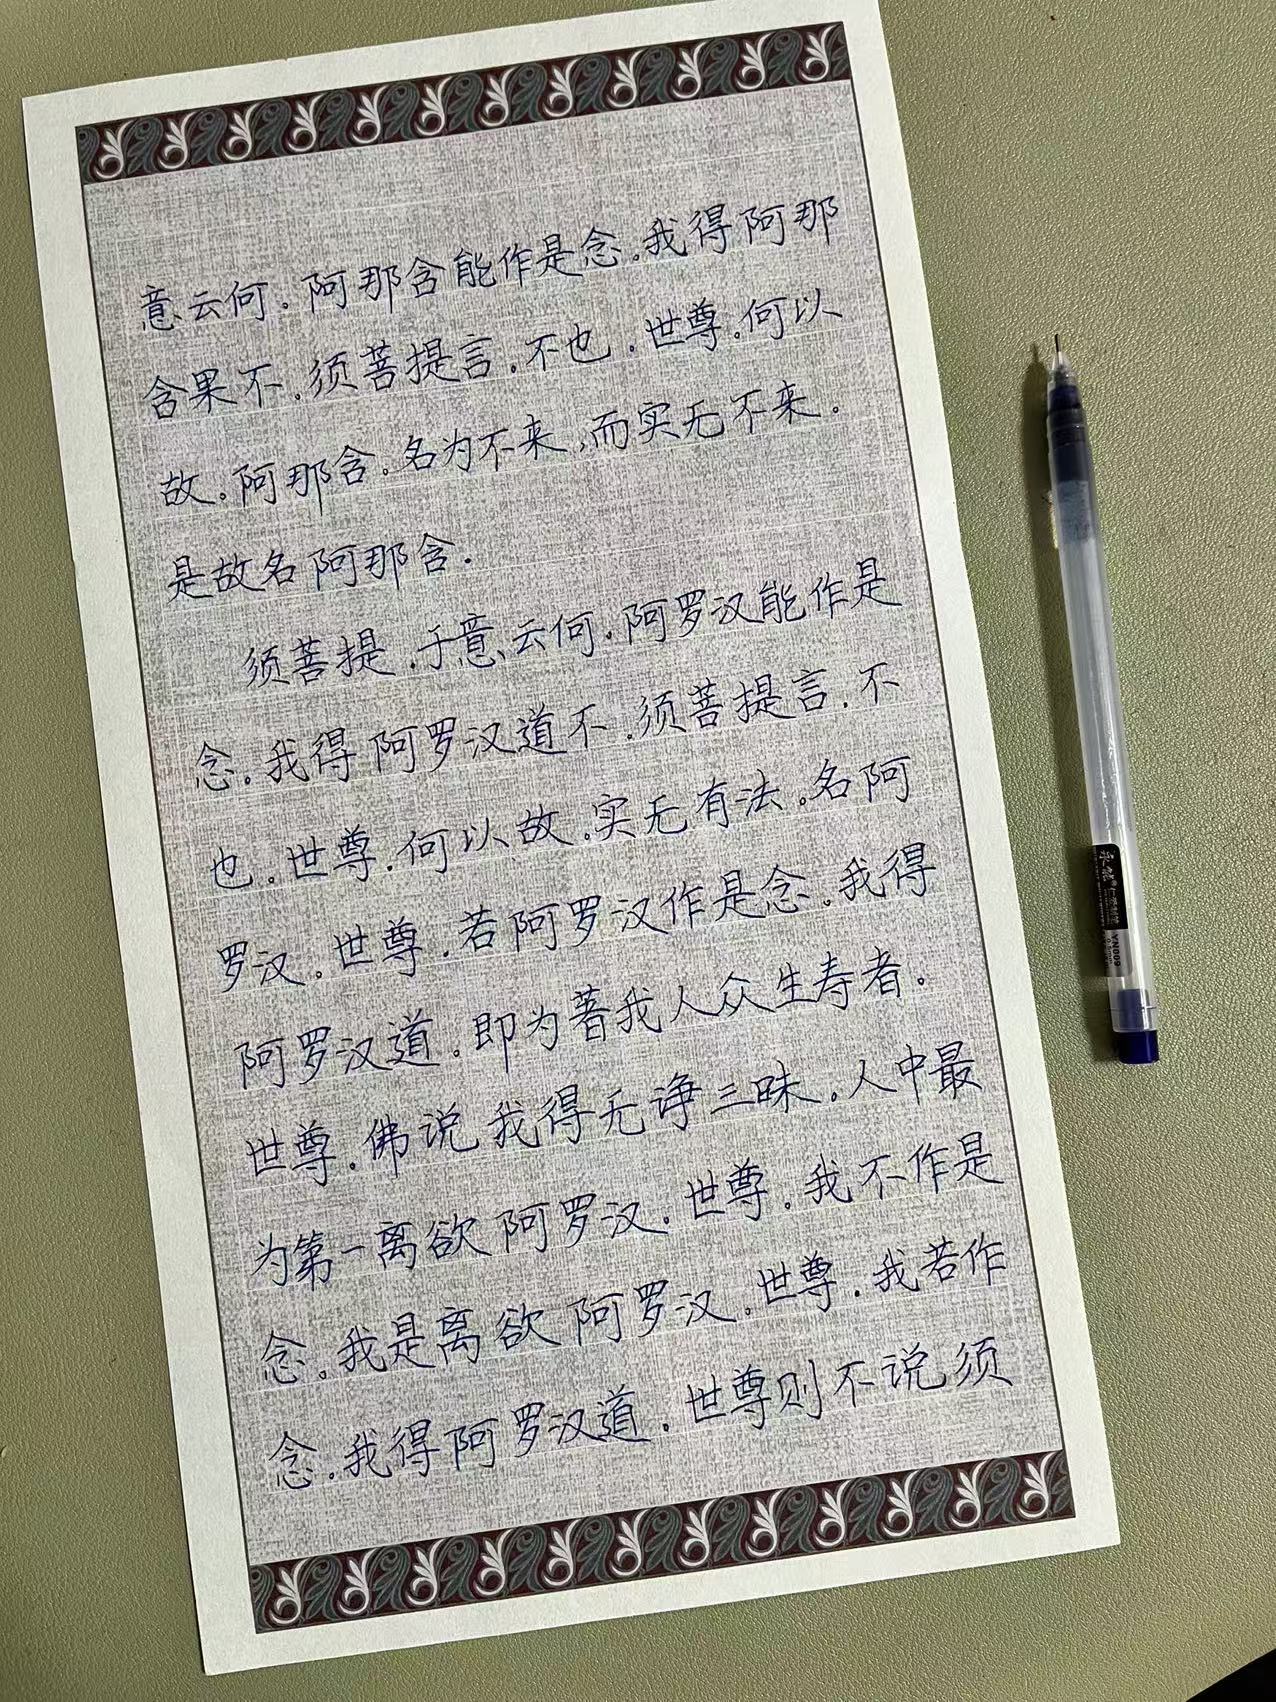 意云何。阿那含能作是念。我得阿那
含果不。须菩提言。不也。世尊。何以
故。阿那含。名为不来，而实无不来。
是故名阿那含。
须菩提。于意云何。阿罗汉能作是
念。我得阿罗汉道不。须菩提言。不
也。世尊。何以故。实无有法。名阿
罗汉。世尊。若阿罗汉作是念。我得
阿罗汉道。即为著我人众生寿者。
世尊。佛说我得无诤三昧。人中最
为第一离欲阿罗汉。世尊。我不作是
念。我是离欲阿罗汉。世尊。我若作
念。我得阿罗汉道。世尊则不说须
永能
YN009